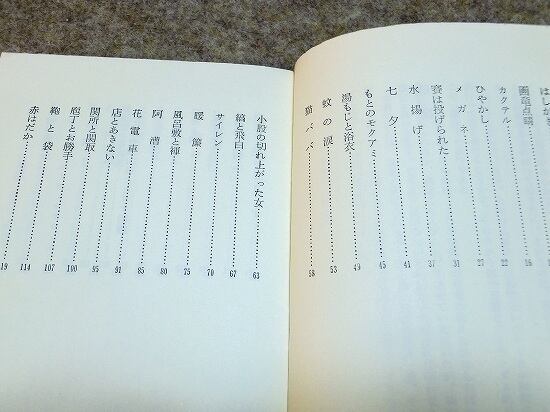 はしが
画竜点睛
カクテル 16
ひやかし 22
メガネ 27
賽は投げられた 31
水揚げ 37
七夕 41
もとのモクアミ 45
湯もじと浴衣 49
蚊の涙 53
猫ババ 58
小股の切れ上がった女 63
縞と飛白 67
サイレン 70
暖簾 75
風呂敷と褌 80
阿漕 85
花電車 91
店とあきない 95
関所と関取 100
庖丁とお勝手 107
鞄と袋 114
赤はだか 19